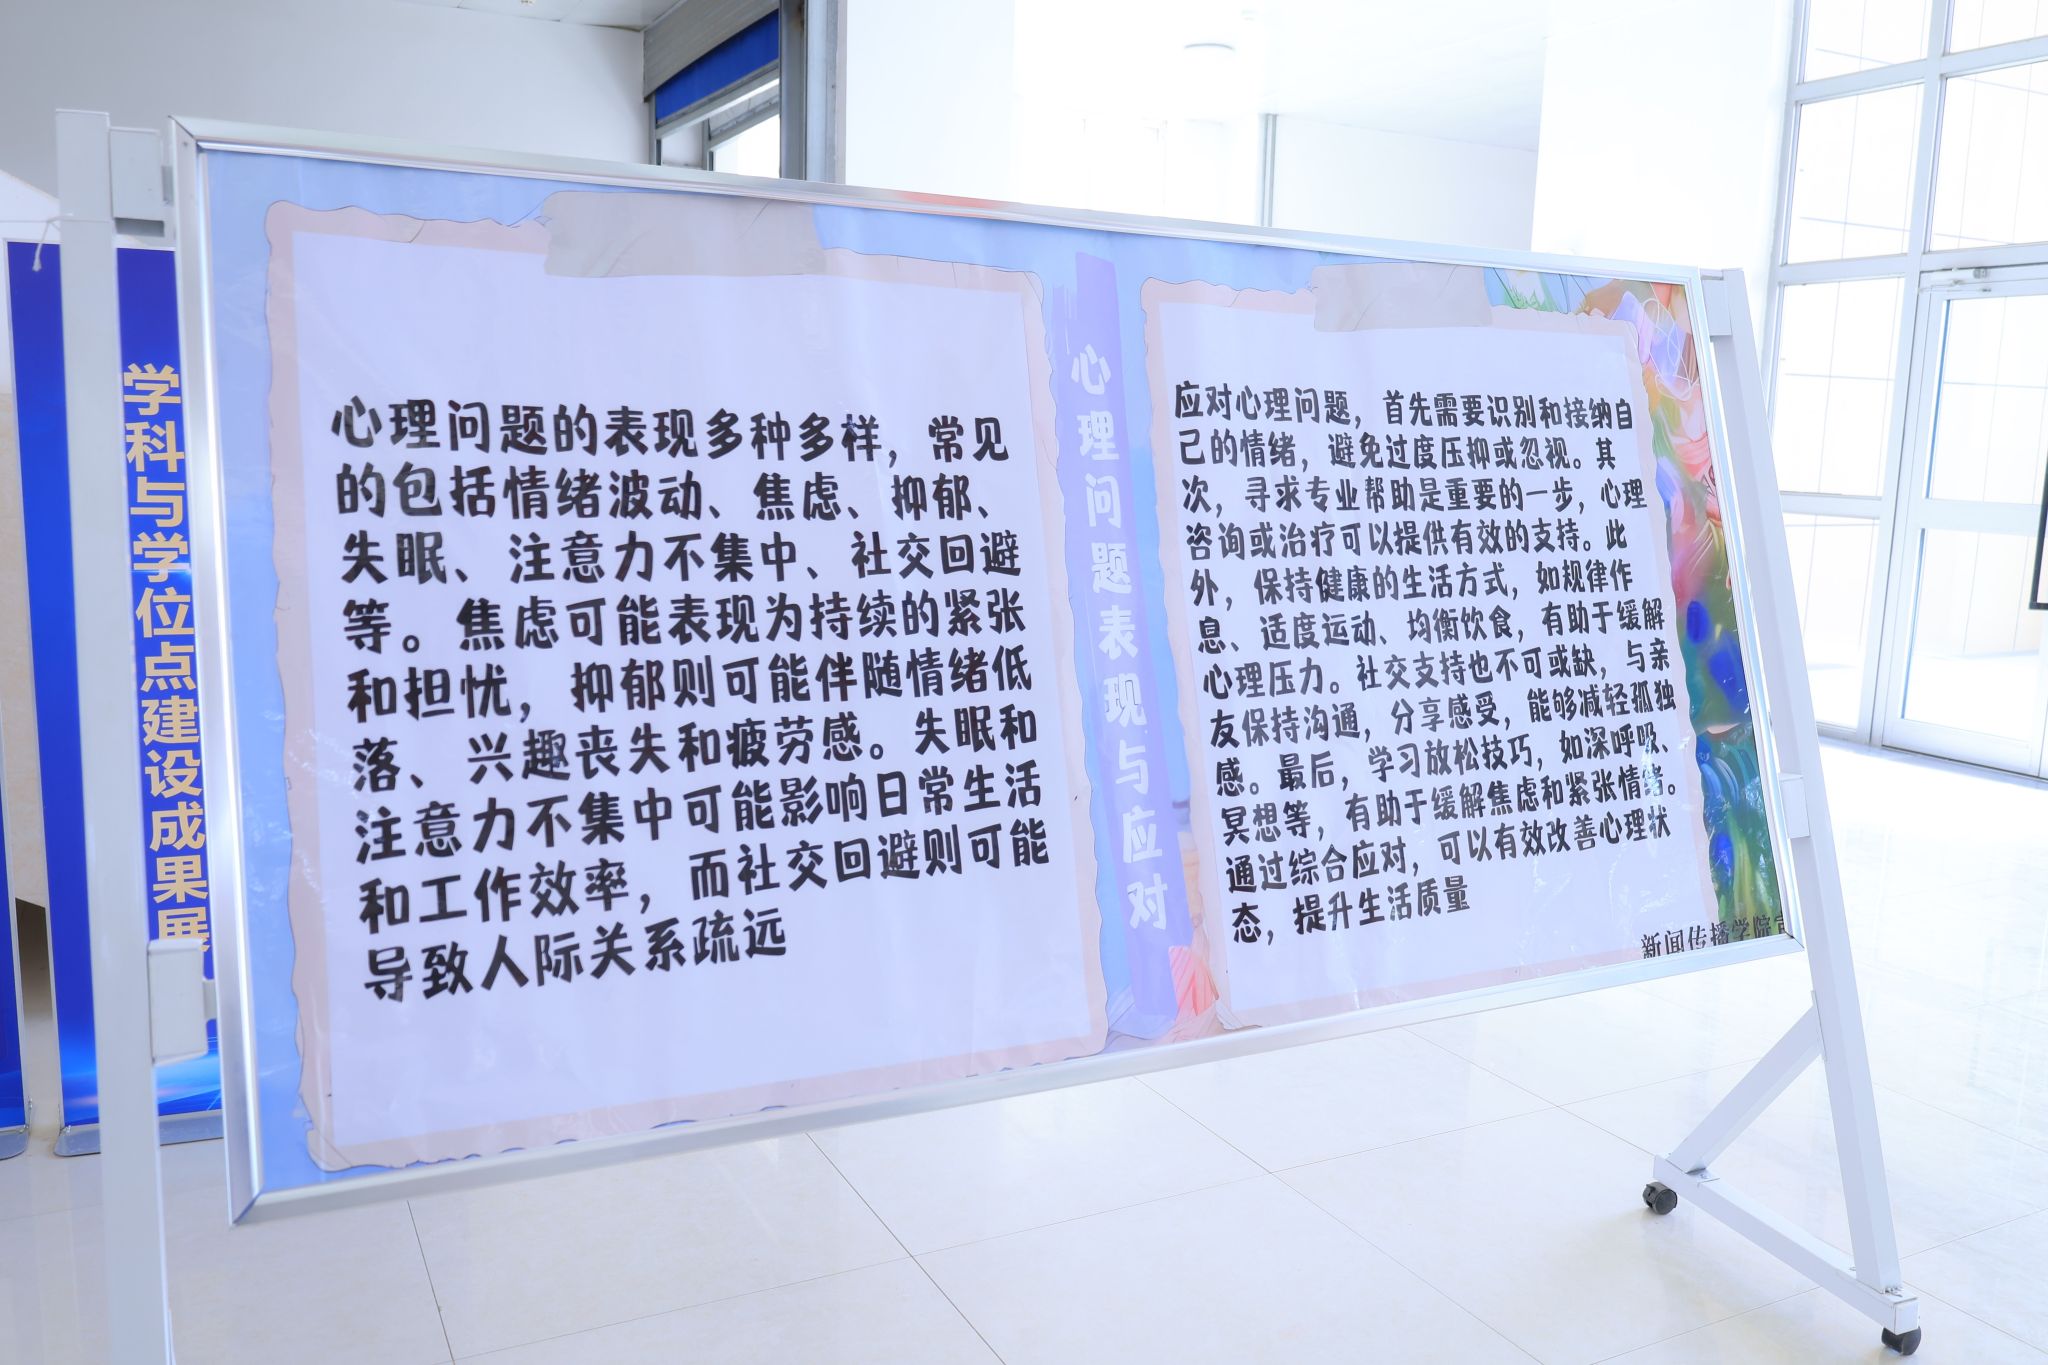 学科与学位点建设成果展
心理问题的表现多种多样，常见
的包括情绪波动、焦虑、抑郁、
失眠、注意力不集中、社交回避
等。焦虑可能表现为持续的紧张
和担忧，抑郁则可能伴随情绪低
落、兴趣丧失和疲劳感。失眠和
注意力不集中可能影响日常生活
和工作效率，而社交回避则可能
导致人际关系疏远
心理问题表现与应对
应对心理问题，首先需要识别和接纳自
己的情绪，避免过度压抑或忽视。其
次，寻求专业帮助是重要的一步，心理
咨询或治疗可以提供有效的支持。此
外，保持健康的生活方式，如规律作
息、适度运动、均衡饮食，有助于缓解
心理压力。社交支持也不可或缺，与亲
友保持沟通，分享感受，能够减轻孤独
感。最后，学习放松技巧，如深呼吸、
冥想等，有助于缓解焦虑和紧张情绪。
通过综合应对，可以有效改善心理状
态，提升生活质量
新闻传播学院